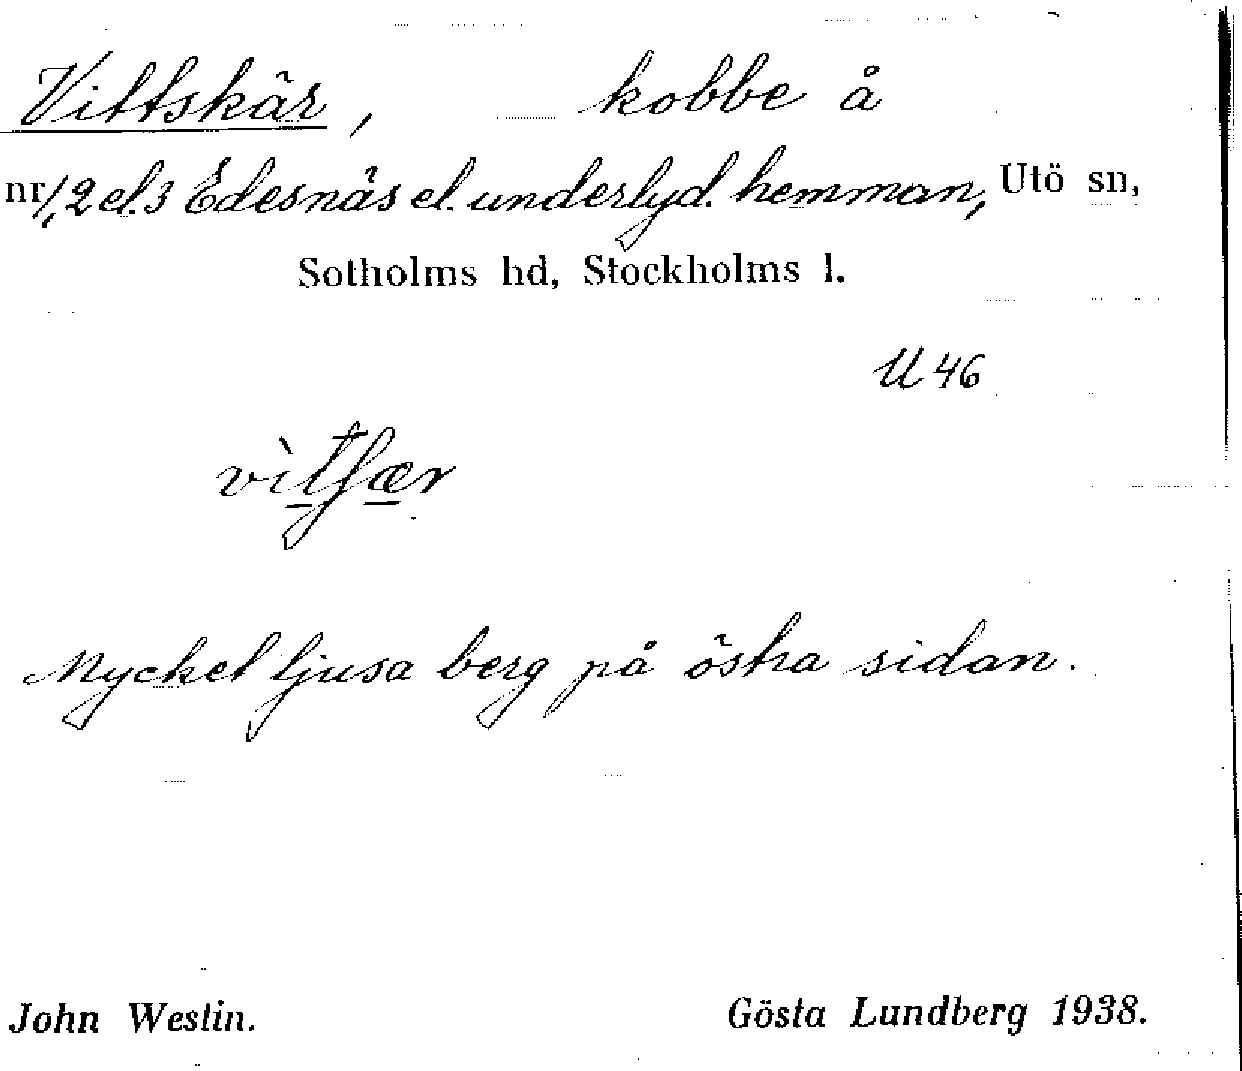 Vittskär, kobbe å
nr 1, 2 el. 3 Edesnäs el. underlyd. hemman, Utö sn,
Sotholms hd, Stockholms l.
U 46
vìtʃær
Mycket ljusa berg på östra sidan.
John Westin. Gösta Lundberg 1938.